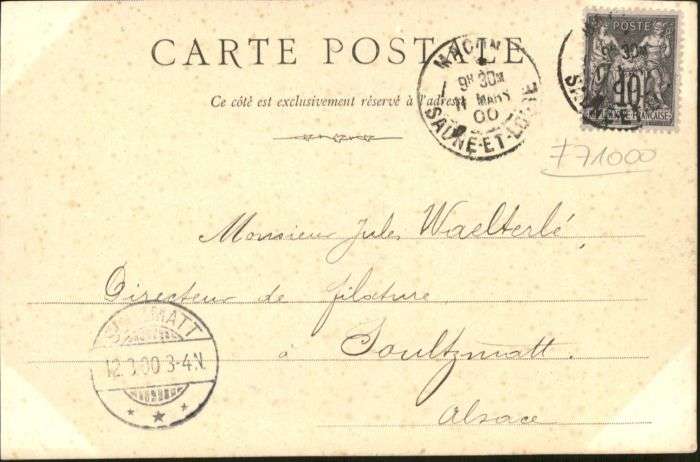 CARTE POSTALE
Ce côté est exclusivement réservé à l'adresse
MACON
9H 30M
11 MARS
00
SAONE-ET-LOIRE
POSTE
10
71000
Monsieur Jules Waelterlé,
Directeur de filature,
à Soultzmatt.
Alsace
12.3.00 3-4N.